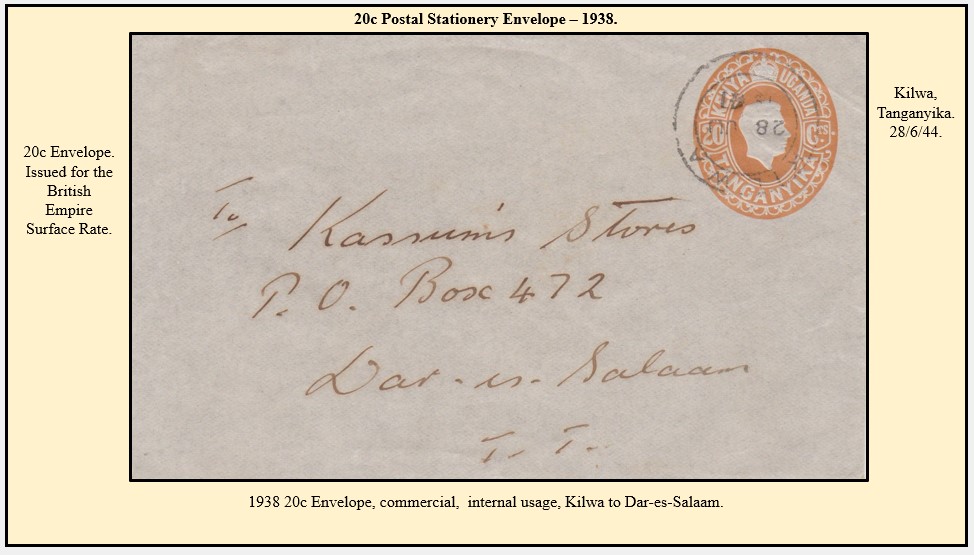 20c Postal Stationery Envelope – 1938.
20c Envelope.
Issued for the
British
Empire
Surface Rate.
Kilwa,
Tanganyika.
28/6/44.
KENYA UGANDA
TANGANYIKA
28 JU
To
Kassum's Stores
P. O. Box 472
Dar-es-Salaam
T. T.
1938 20c Envelope, commercial, internal usage, Kilwa to Dar-es-Salaam.